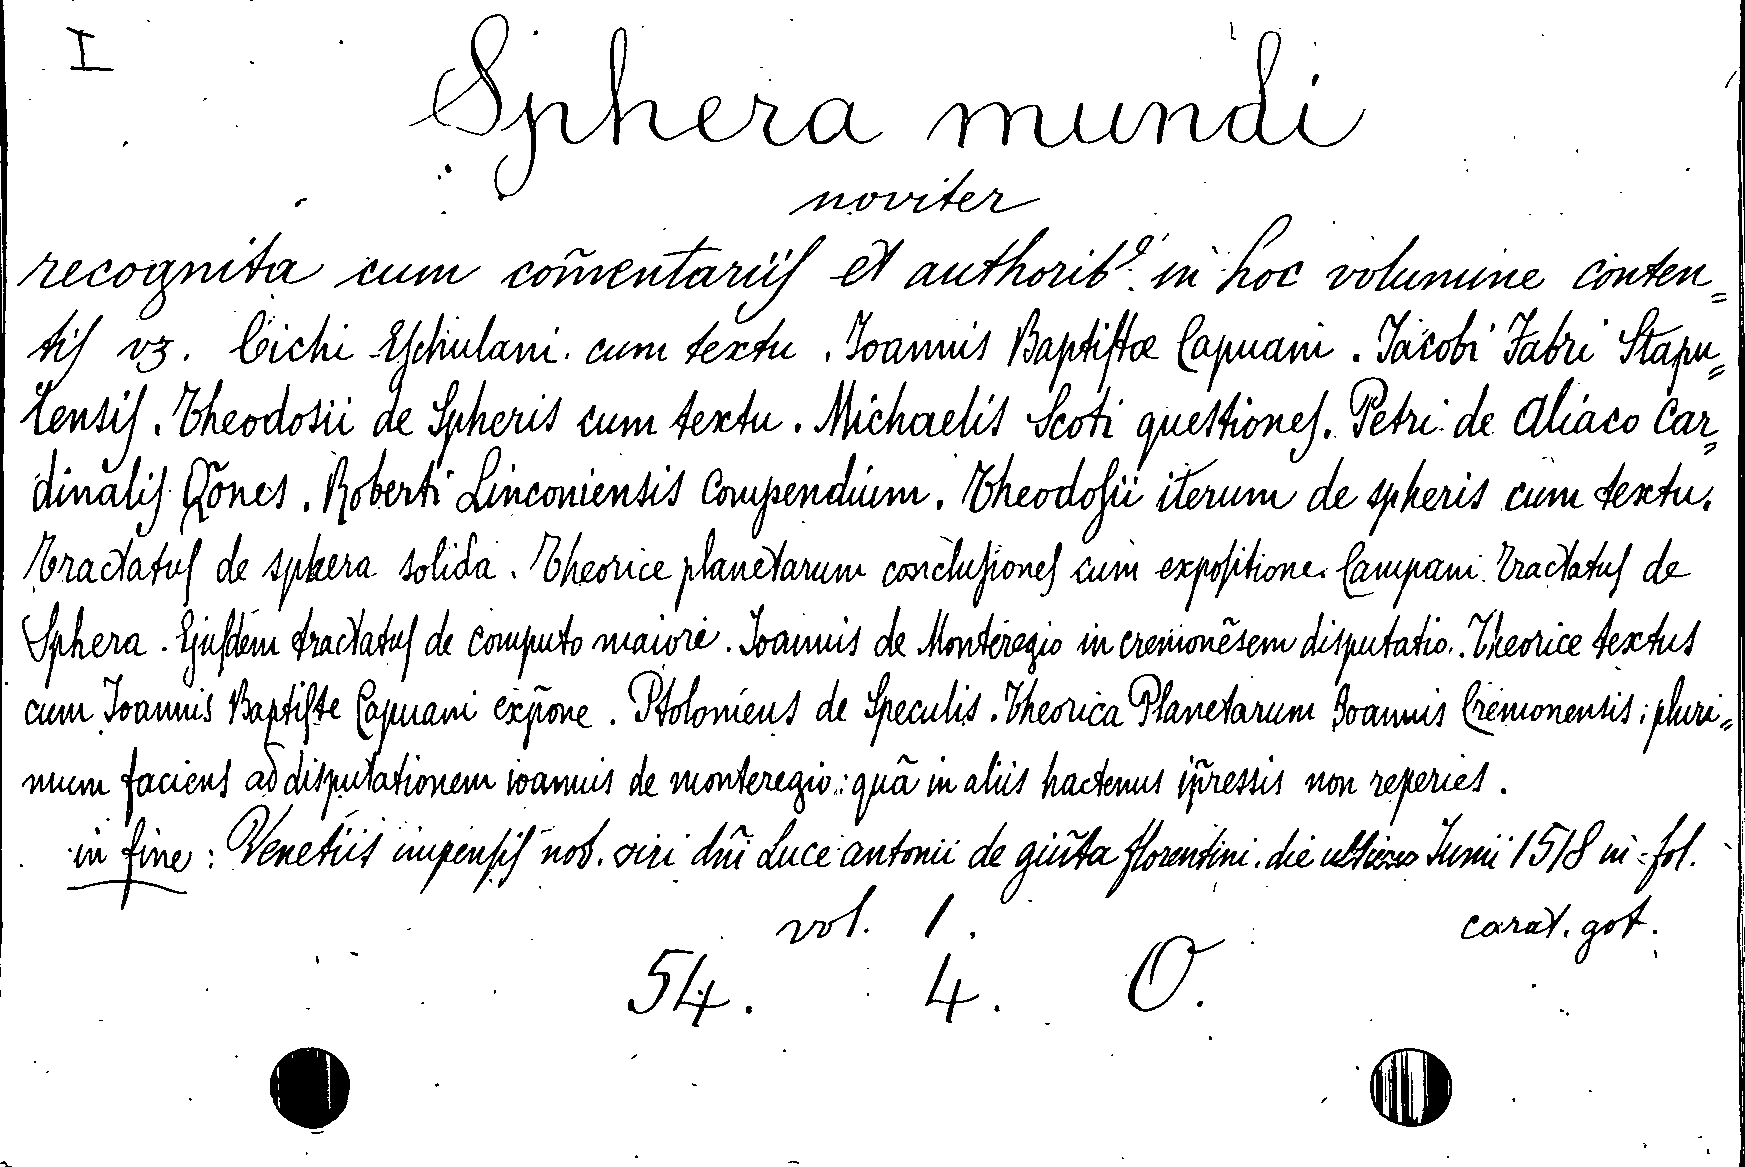 I
Sphera mundi
noviter
recognita cum com̃entariis et authorib⁹ in hoc volumine conten=
tis vz. Cichi Eschulani cum textu. Joannis Baptistæ Capuani. Jacobi Fabri Stapu=
lensis. Theodosii de Spheris cum textu. Michaelis Scoti questiones. Petri de Aliaco Car=
dinalis Qõnes. Roberti Linconiensis Compendium. Theodosii iterum de spheris cum textu.
Tractatus de sphera solida. Theorice planetarum conclusiones cum expositione. Campani Tractatus de
Sphera. Ejusdem tractatus de computo maiori. Joannis de Monteregio in cremonẽsem disputatio. Theorice textus
cum Joannis Baptiste Capuani exp̃one. Ptolomeus de Speculis. Theorica Planetarum Joannis Cremonensis; pluri=
mum faciens ad disputationem ioannis de monteregio: quã in aliis hactenus ip̃ressis non reperies.
in fine: Venetiis impensis nob. viri dñi Luce antonii de giũta florentini. die ultimo Junii 1518 in-fol.
vol. 1. carat. got.
54. 4. O.